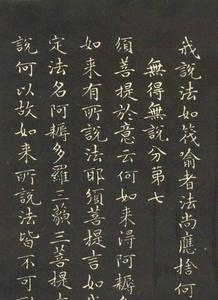 我說法如筏喻者法尚應捨何
無得無說分第七
須菩提於意云何如來得阿耨多
如來有所說法耶須菩提言如我
定法名阿耨多羅三藐三菩提亦
說何以故如來所說法皆不可取